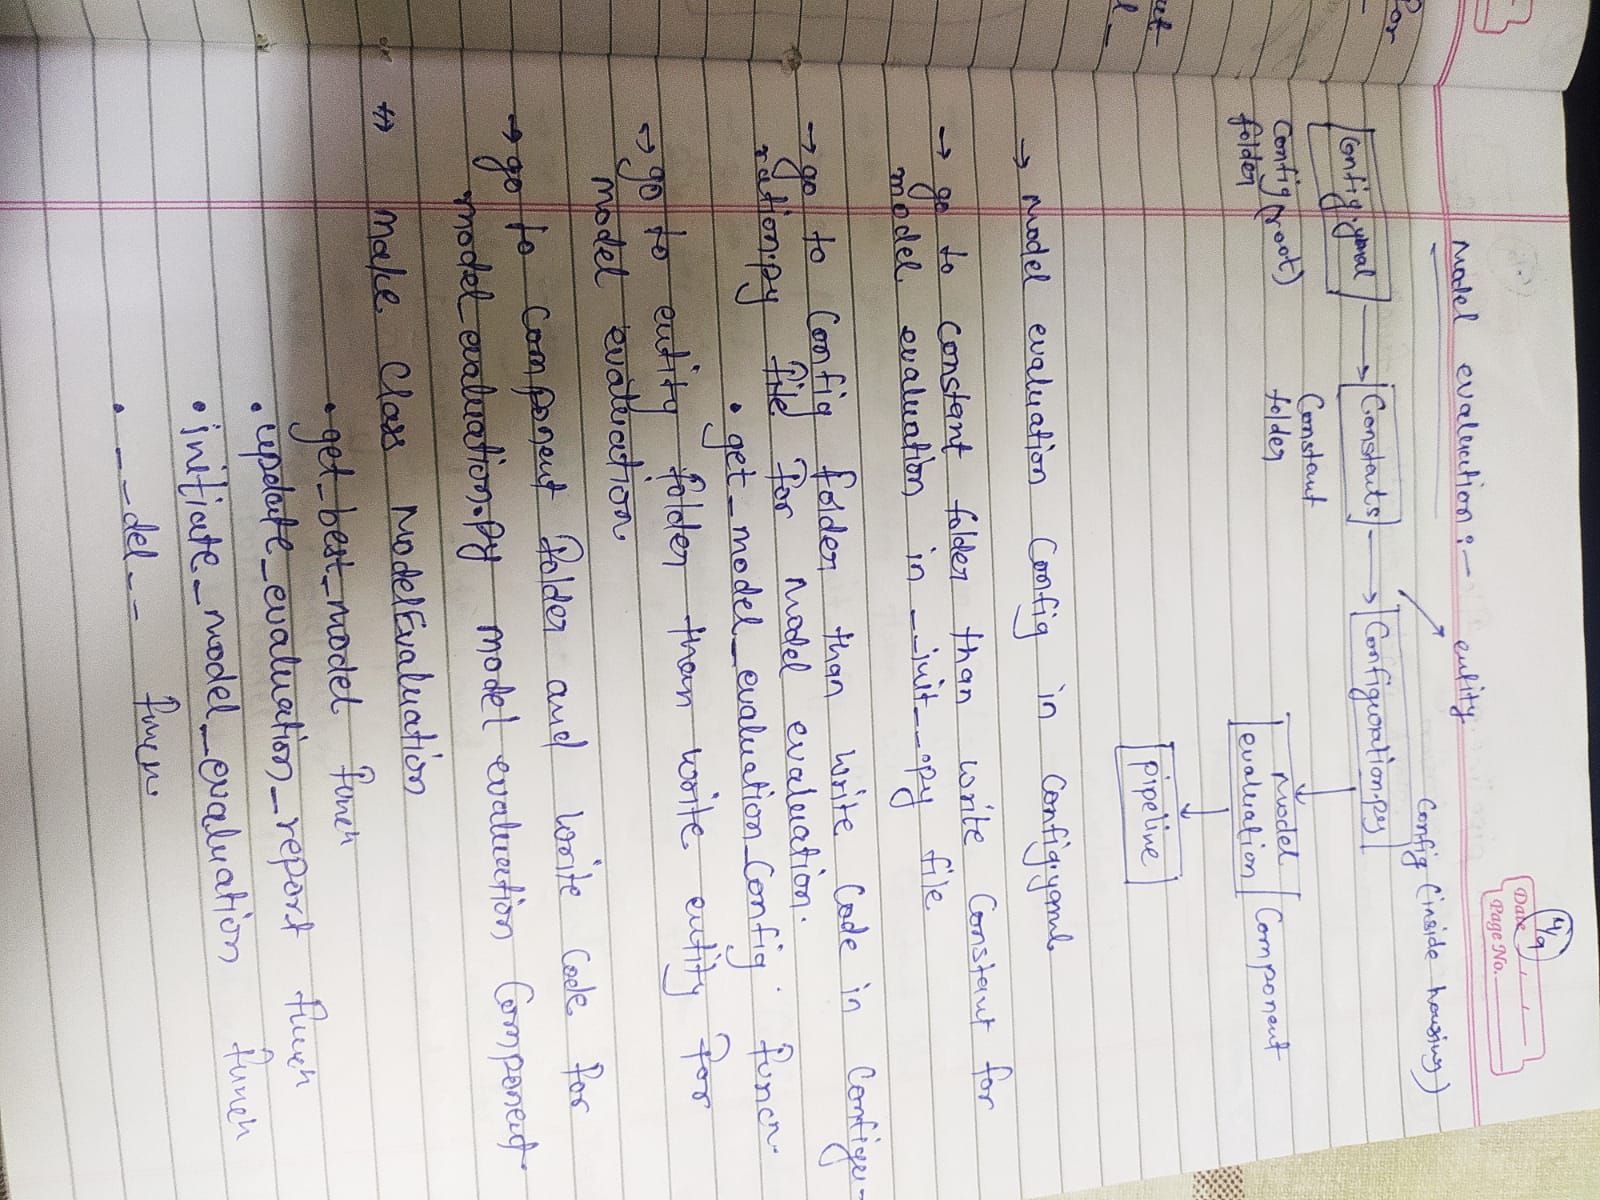 4/9
Date
Page No.
Model evaluation :-
entity
Config (inside housing)
Config.ymal
Constants
Configuration.py
Config (root)
folder
Constant
folder
Model
evaluation
Component
pipeline
→ Model evaluation Config in Config.yaml
→ go to constant folder than write Constant for
model evaluation in __init__.py file
→ go to Config folder than write Code in Configu-
ration.py file for Model evaluation.
• get_model_evaluation_Config funcn.
→ go to entity folder than write entity for
model evaluation
→ go to component folder and write Code for
model_evaluation.py model evaluation Component
make Class ModelEvaluation
• get_best_model funcn
• update_evaluation_report funcn
• initiate_model_evaluation funcn
• __del__ funcn
for